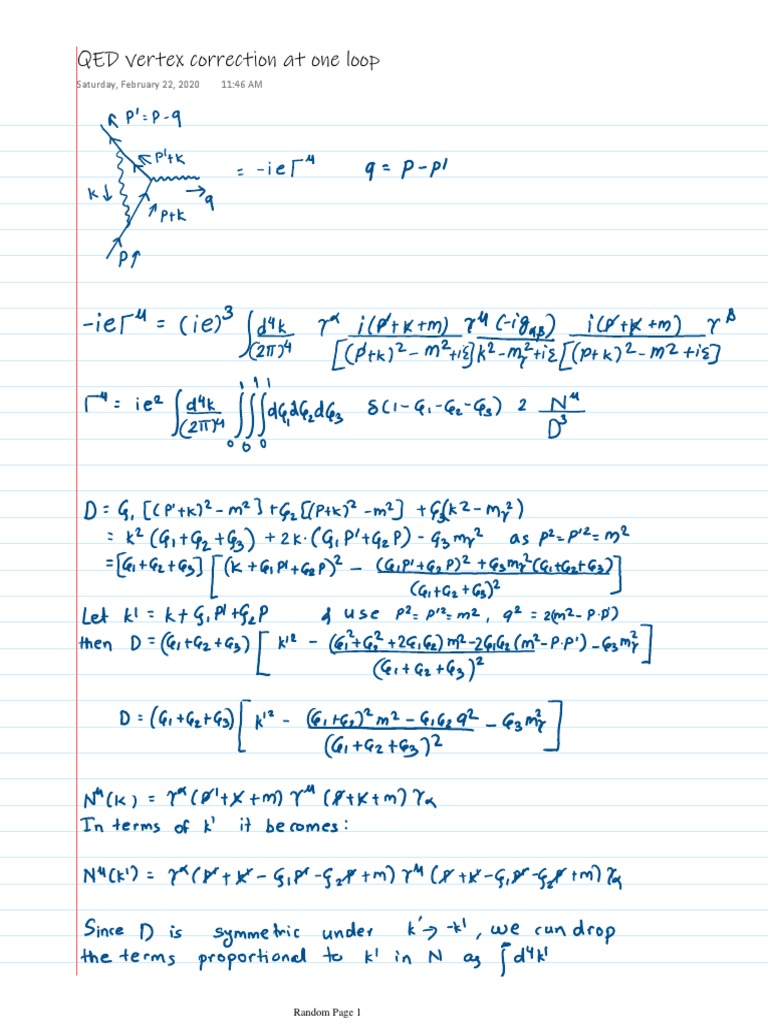 QED vertex correction at one loop
Saturday, February 22, 2020 11:46 AM
p' = p - q
p'+k
k↓
→ q
p+k
p↑
= -ieΓ^μ q = p - p'
-ieΓ^μ = (ie)^3 ∫ d^4k/(2π)^4 γ^α i(p̸'+k̸+m) γ^μ (-ig_αβ) i(p̸+k̸+m) γ^β / [(p'+k)^2 - m^2 + iε] k^2 - m_γ^2 + iε [(p+k)^2 - m^2 + iε]
Γ^μ = ie^2 ∫ d^4k/(2π)^4 ∫_0^1 ∫_0^1 ∫_0^1 dζ_1 dζ_2 dζ_3 δ(1-ζ_1-ζ_2-ζ_3) 2 N^μ/D^3
D = ζ_1 [(p'+k)^2 - m^2] + ζ_2 [(p+k)^2 - m^2] + ζ_3 (k^2 - m_γ^2)
= k^2 (ζ_1+ζ_2+ζ_3) + 2k·(ζ_1 p' + ζ_2 p) - ζ_3 m_γ^2 as p^2 = p'^2 = m^2
= [ζ_1+ζ_2+ζ_3] [(k + ζ_1 p' + ζ_2 p)^2 - (ζ_1 p' + ζ_2 p)^2 + ζ_3 m_γ^2 (ζ_1+ζ_2+ζ_3) / (ζ_1+ζ_2+ζ_3)^2]
Let k' = k + ζ_1 p' + ζ_2 p & use p^2 = p'^2 = m^2, q^2 = 2(m^2 - p·p')
then D = (ζ_1+ζ_2+ζ_3) [k'^2 - (ζ_1^2 + ζ_2^2 + 2ζ_1ζ_2) m^2 - 2ζ_1ζ_2 (m^2 - p·p') - ζ_3 m_γ^2 / (ζ_1+ζ_2+ζ_3)^2]
D = (ζ_1+ζ_2+ζ_3) [k'^2 - (ζ_1+ζ_2)^2 m^2 - ζ_1ζ_2 q^2 / (ζ_1+ζ_2+ζ_3)^2 - ζ_3 m_γ^2]
N^μ(k) = γ^α (p̸'+k̸+m) γ^μ (p̸+k̸+m) γ_α
In terms of k' it becomes:
N^μ(k') = γ^α (p̸' + k̸' - ζ_1 p̸' - ζ_2 p̸ + m) γ^μ (p̸ + k̸' - ζ_1 p̸' - ζ_2 p̸ + m) γ_α
Since D is symmetric under k' → -k', we can drop
the terms proportional to k' in N as ∫d^4k'
Random Page 1